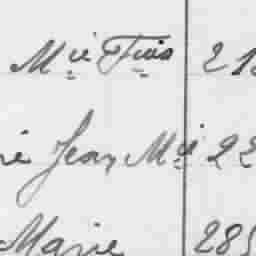 Mie Fois 21
Jean Mie 22
Marie 285